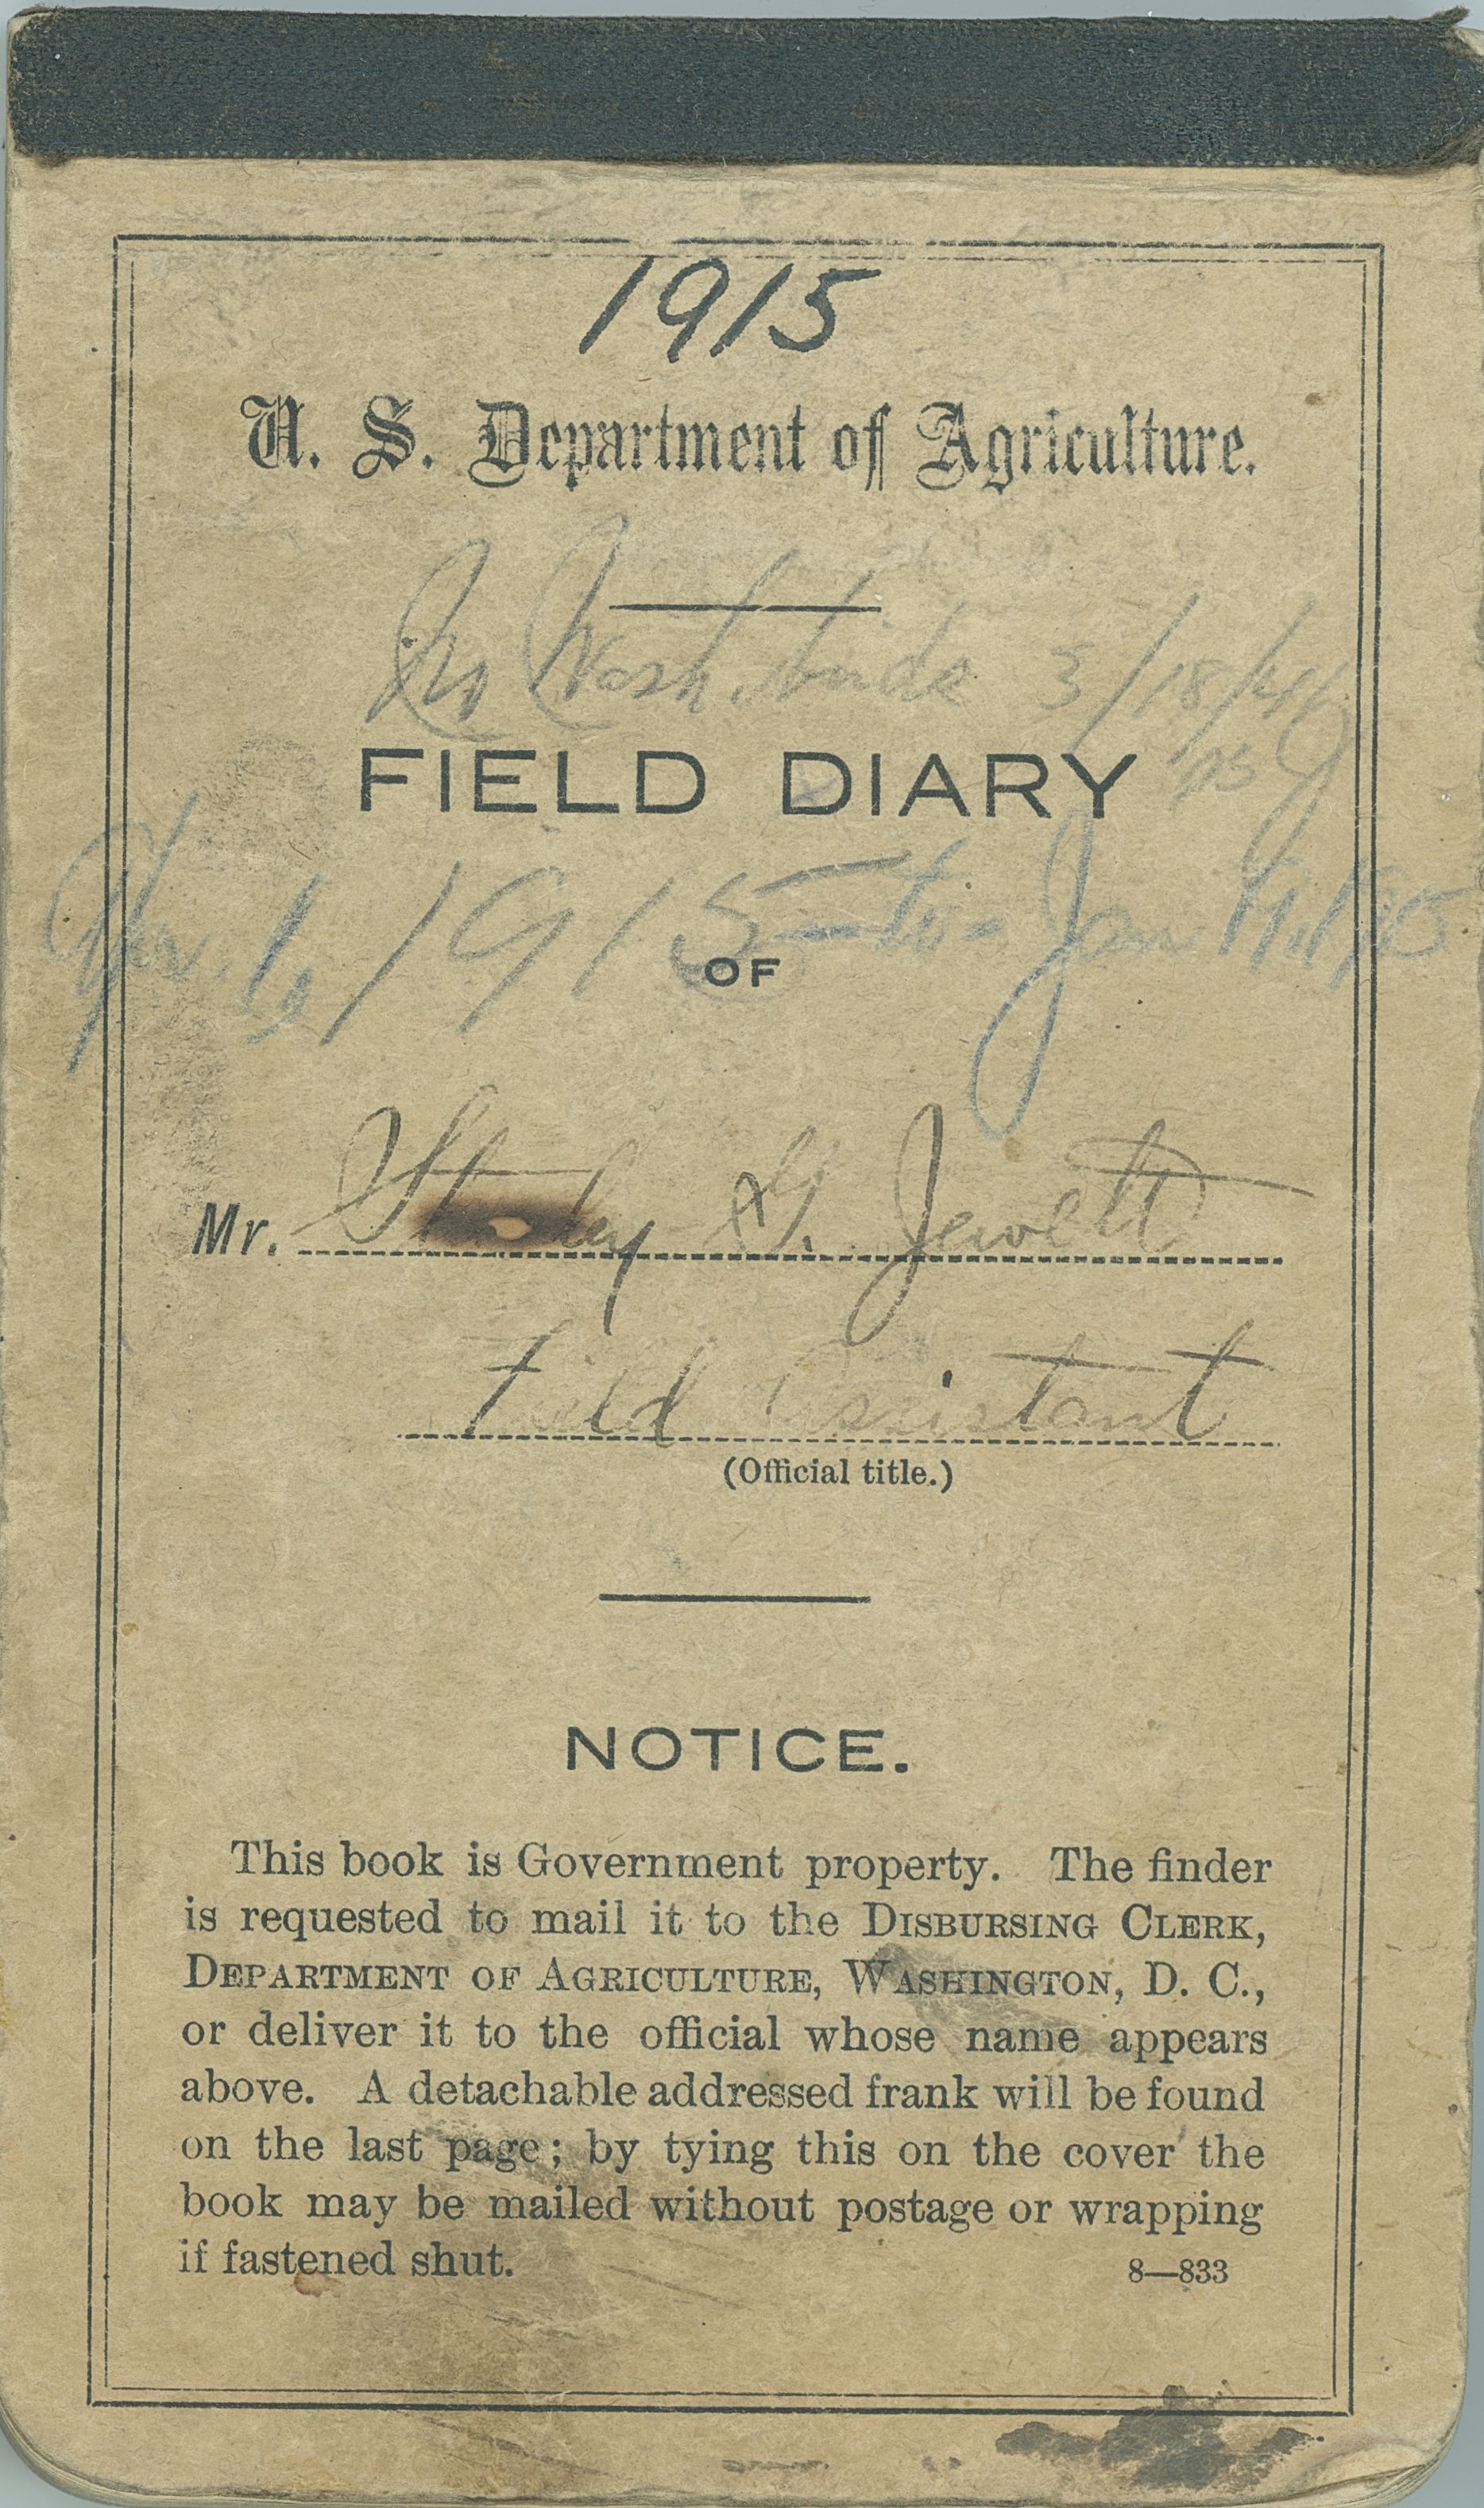 1915
U. S. Department of Agriculture.
Wash. birds 3/18/41
FIELD DIARY
1915 - to - Jan
OF
Mr. Stanley G. Jewett
Field Assistant
(Official title.)
NOTICE.
This book is Government property. The finder
is requested to mail it to the DISBURSING CLERK,
DEPARTMENT OF AGRICULTURE, WASHINGTON, D. C.,
or deliver it to the official whose name appears
above. A detachable addressed frank will be found
on the last page; by tying this on the cover the
book may be mailed without postage or wrapping
if fastened shut. 8—833